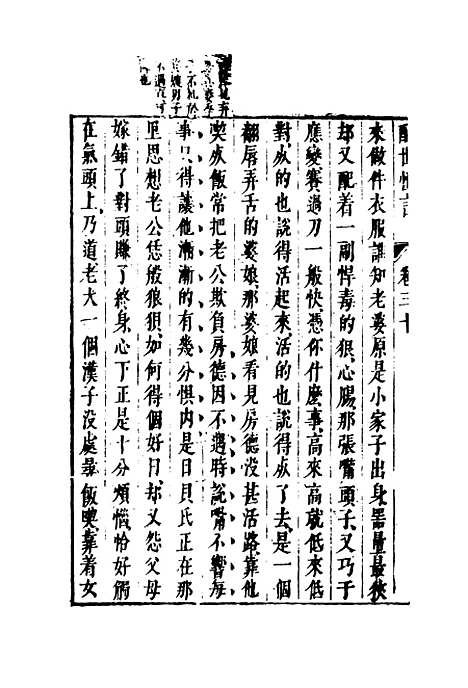 醒世恒言　卷三十
來做件衣服誰知老婆原是小家子出身器量最狹
却又配着一副悍毒的狠心腸那張嘴頭子又巧于
應變賽過刀一般快憑你什麽事高來高就低來低
對死的也說得活起來活的也說得死了去是一個
翻唇弄舌的婆娘那婆娘看見房德沒甚活路靠他
喫死飯常把老公欺負房德因不遇時說嘴不響每
事只得讓他漸漸的有幾分懼內是日貝氏正在那
里思想老公恁般狼狽如何得個好日却又怨父母
嫁錯了對頭賺了終身心下正是十分煩惱恰好觸
在氣頭上乃道老大一個漢子沒處尋飯喫靠着女